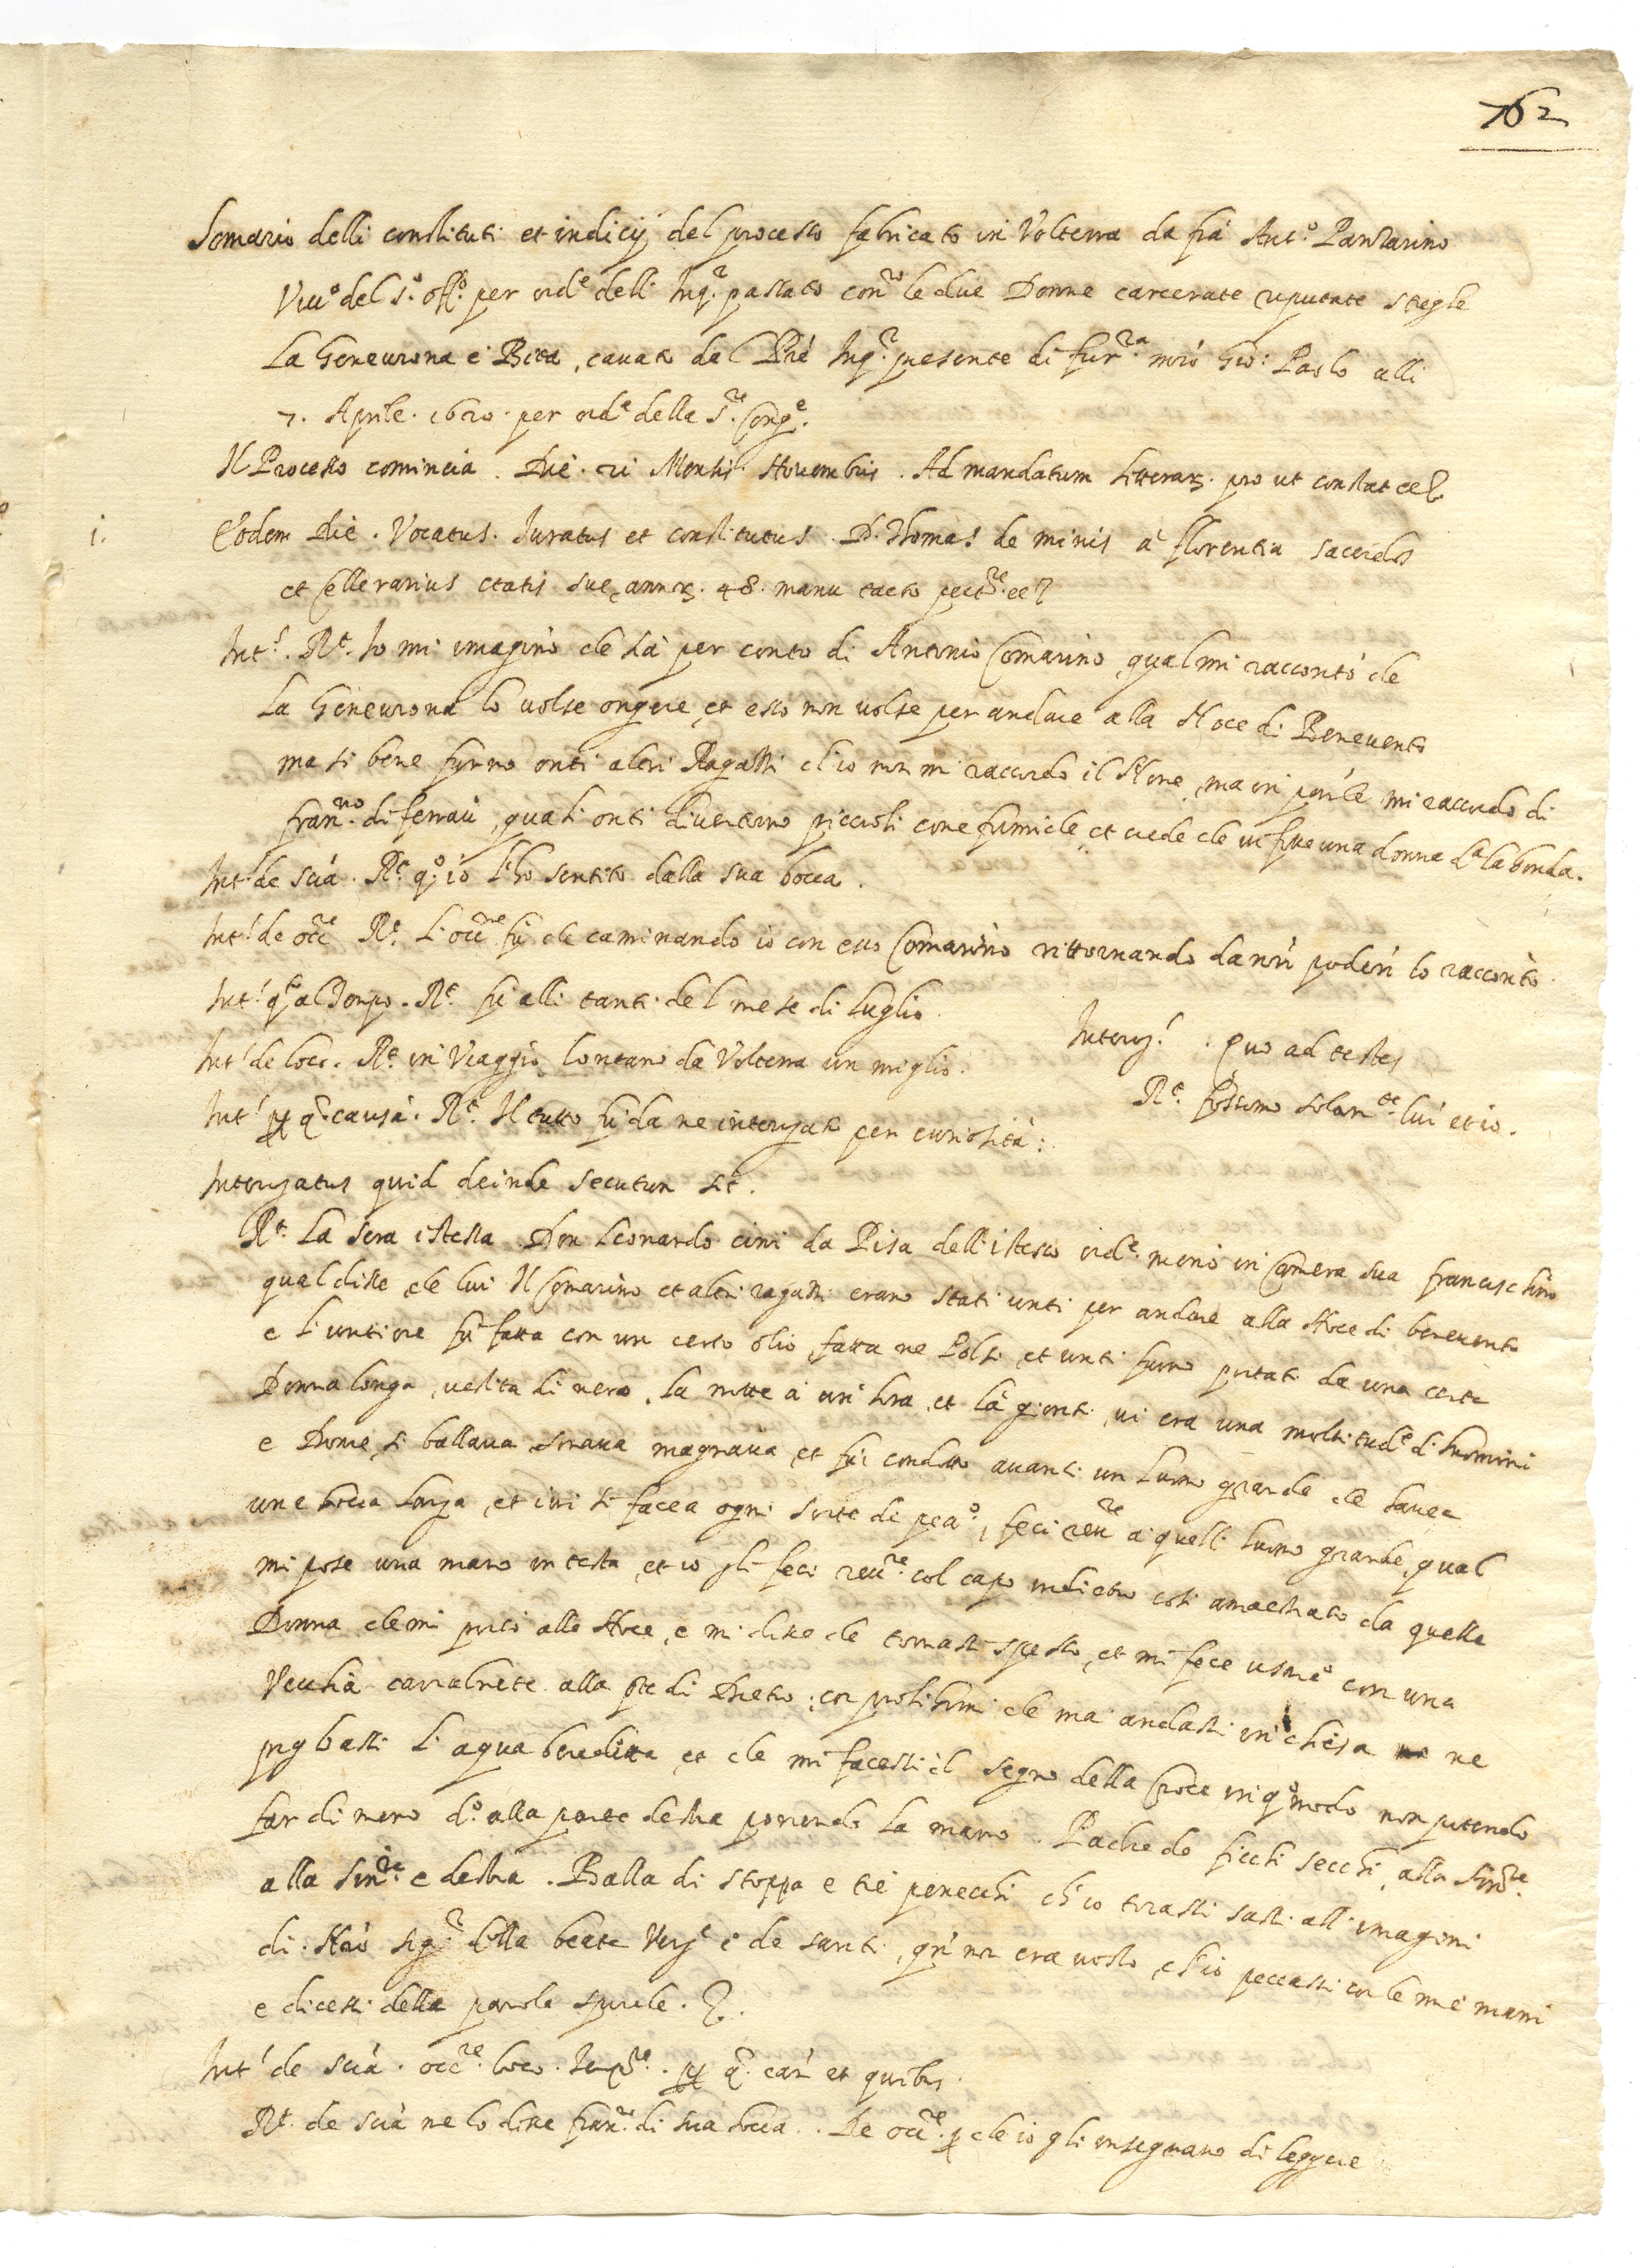 762
Somario delli constituti et indicij del processo fabricato in Volterra da frà Ant.º Panzarino
Vic.º del S.º off.º per ord.e dell' Inq.r passato con.ro le due Donne carcerate reputate streghe
La Geneurona e Bita, cavato dal Prè Inq.r presente di fior.za mrõ Gio: Paolo alli
7. Aprile. 1620. per ord.e della S.re Cong.e.
Il Processo comincia. Die. 21 Mensis Novembris. Ad mandatum litterar. pro ut constat etc.
1. Eodem Die. Vocatus. Iuratus et constitutus D. Thomas de minis à florentia sacerdos
et Cellerarius etatis sue annor. 48. manu tacto pect.re etc
Int.s. R.t Io mi imagino che sia per conto di Antonio Comarino, qual mi raccontò che
La Geneurona lo volse ongere, et esso non volse per andare alla Noce di Benevento
ma si bene furno onti altri Ragazzi ch'io non mi raccordo il Nome, ma in par.le mi raccordo di
fran.no di ferraù, quali onti diventorno piccioli come formiche, et crede che vi fusse una donna d.a la bionda.
Int.s de scià. R.t q.º io l'ho sentito dalla sua bocca.
Int.s de occ.e R.t L'occ.ne fù che caminando io con esso Comarino rittornando da nrì poderi lo raccontò.
Int.s q.e al Tempo. R.t fù alli tanti del mese di luglio.
Int.s de loco. R.t in Viaggio, lontano da Volterra un miglio.
Interog.s. Quo ad testes
R.t fossimo solam.te lui et io.
Int.s p q. causa. R.t Il tutto fù da me interogato per curiosità:
Interrogatus quid deinde secutum sit.
R.t La sera istessa Don Leonardo cini da Pisa dell'istesso ord.e menò in Camera sua franceschino
qual disse che lui Il Comarino et altri ragazzi erano stati unti per andare alla Noce di benevento
e l'untione fù fatta con un certo olio, fatta ne Polsi et unti furno portati da una certa
Donna longa, vestita di nero, la notte à un'hora, et là gionti, vi era una moltitud.e di huomini
e Donne, si ballava sonava magnava et fui condotto avanti un huomo grande che havea
una bocca larga, et ivi si facea ogni sorte di pec.º, feci reu.re à quell'huomo grande, qual
mi pose una mano in testa, et io gli feci reu.re col capo indietro così amaestrato da quella
Donna che mi portò alla Noce, e mi disse che tornassi spesso, et mi fece usare con una
Vecchia carnalmete alla pte di Dietro; con prohibirmi che mai andassi in chiesa ne
pigliassi l'aqua benedetta et che mi facessi il segno della Croce in q.º modo non potendo
far di meno d.º alla parte destra ponendo la mano. Pachedo ficchi secchi, alla sin.re
alla sin.ra e destra. Balla di stoppa e trè penecchi ch'io tirassi sassi all'imagini
di Nrò Sig.r della beata Verg.e e de santi, qñ non era visto, ch'io peccassi con le mie mani
e dicessi delle parole sporche.
Int.s de scià. occ.re loco. Temp.re. p q. cau et quibus.
R.t de scià ne lo disse fran.co di sua bocca. De occ.re p che io gli insegnavo di leggere